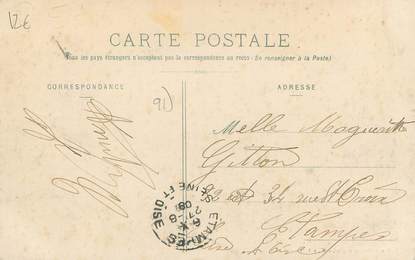 12€
CARTE POSTALE
Tous les pays étrangers n'acceptent pas la correspondance au recto (Se renseigner à la Poste)
CORRESPONDANCE
ADRESSE
91)
Melle Marguerite
Gitton
32 et 34 rue Ste Croix
Etampes
Seine & Oise
ETAMPES
SEINE ET OISE
27-8
08